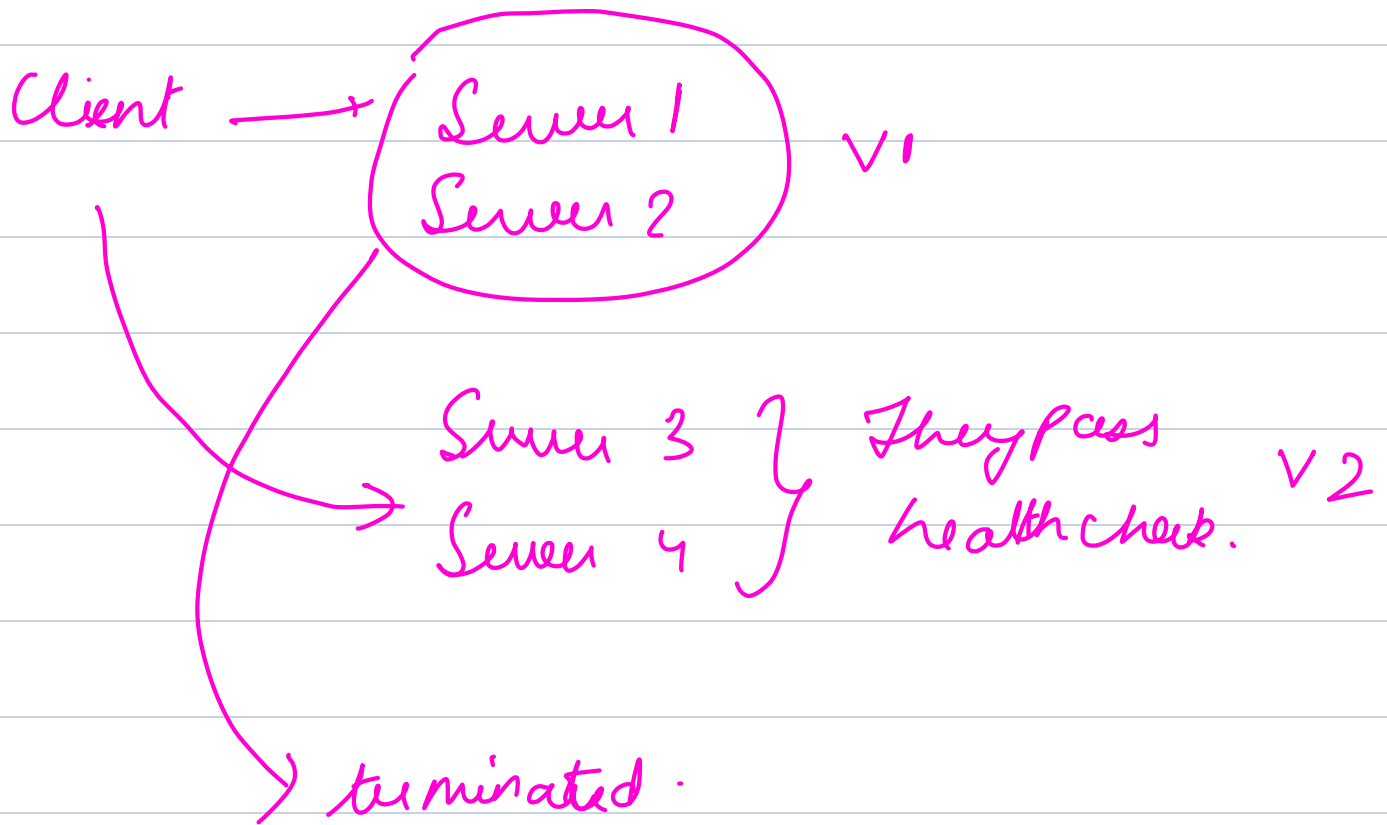 Client → Server 1
Server 2
V1
Server 3
Server 4
They pass
health check.
V2
terminated.